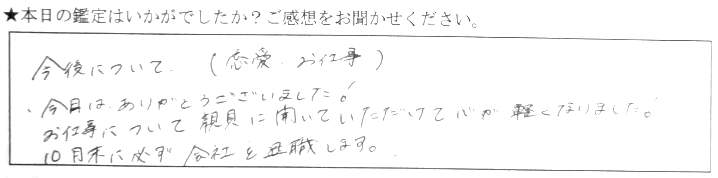 ★本日の鑑定はいかがでしたか？ご感想をお聞かせください。
今後について．（恋愛．お仕事）
、今日は、ありがとうございました！
お仕事について親身に聞いていただけて心が軽くなりました！
10月末に必ず会社を退職します。